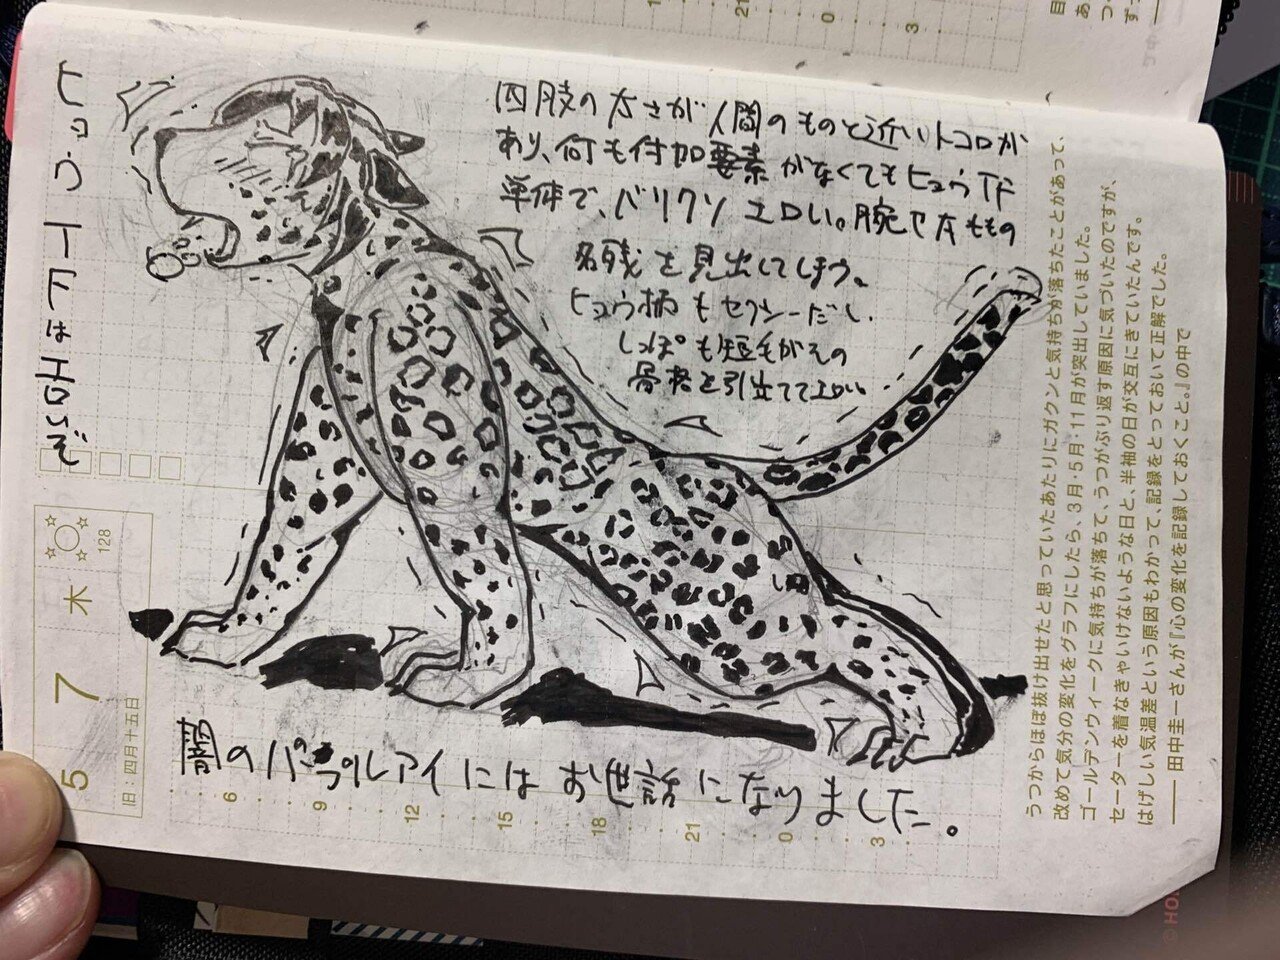 ヒョウTFはエロいぞ
四肢の太さが人間のものと近いトコロが
あり、何も付加要素がなくてもヒョウTF
単体で、バリクソエロい。腕や太ももの
名残を見出してしまう。
ヒョウ柄もセクシーだし、
しっぽも短毛がその
骨格を引出ててエロい
闇のパープルアイにはお世話になりました。
5 7 木
旧:四月十五日
128
6 9 12 15 18 21 0 3
うつからほぼ抜け出せたと思っていたあたりにガクンと気持ちが落ちたことがあって、
改めて気分の変化をグラフにしたら、3月・5月・11月が突出していました。
ゴールデンウィークに気持ちが落ちて、うつがぶり返す原因に気づいたのですが、
セーターを着なきゃいけないような日と、半袖の日が交互にきていたんです。
はげしい気温差という原因もわかって、記録をとっておいて正解でした。
――田中圭一さんが『心の変化を記録しておくこと。』の中で
21 0 3
© HO